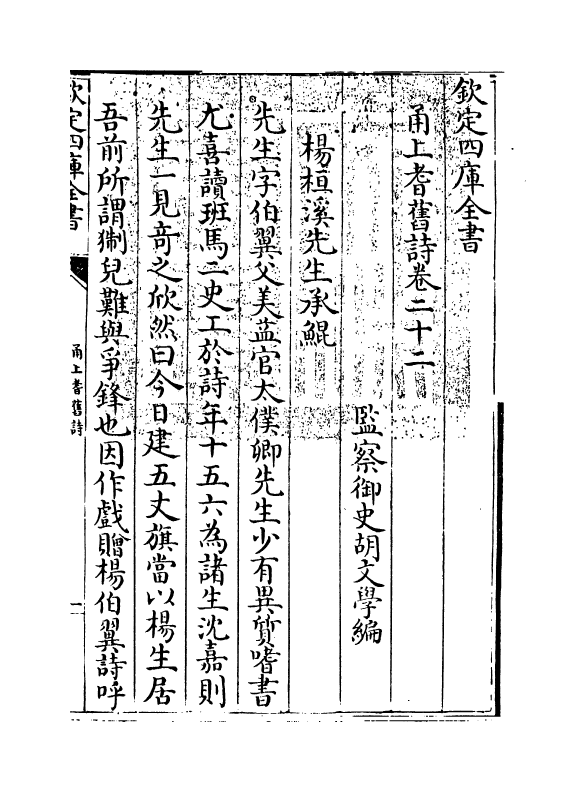 欽定四庫全書
甬上耆舊詩卷二十二
監察御史胡文學編
楊桓溪先生承鯤
先生字伯翼父美益官太僕卿先生少有異質嗜書
尤喜讀班馬二史工於詩年十五六為諸生沈嘉則
先生一見奇之欣然曰今日建五丈旗當以楊生居
吾前所謂猘兒難與爭鋒也因作戲贈楊伯翼詩呼
欽定四庫全書
甬上耆舊詩
一